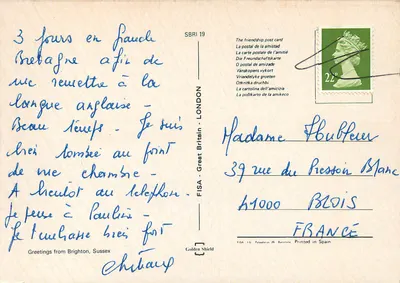 3 jours en Grande
Bretagne afin de
me remettre à la
langue anglaise -
Beau temps - Je suis
bien tombée au point
de vue chambre -
A bientot au telephone -
Je pense à Pauline -
Je t'embrasse bien fort
Greetings from Brighton, Sussex
SBRI 19
FISA - Great Britain - LONDON
Golden Shield
The friendship post card
La postal de la amistad
La carte postale de l'amitié
Die Freundschaftskarte
O postal de amizade
Vänskapens vykort
Vriendelijke groeten
La cartolina dell'amicizia
22
Madame
39 rue du Pressoir Blanc
41000 BLOIS
FRANCE
Printed in Spain